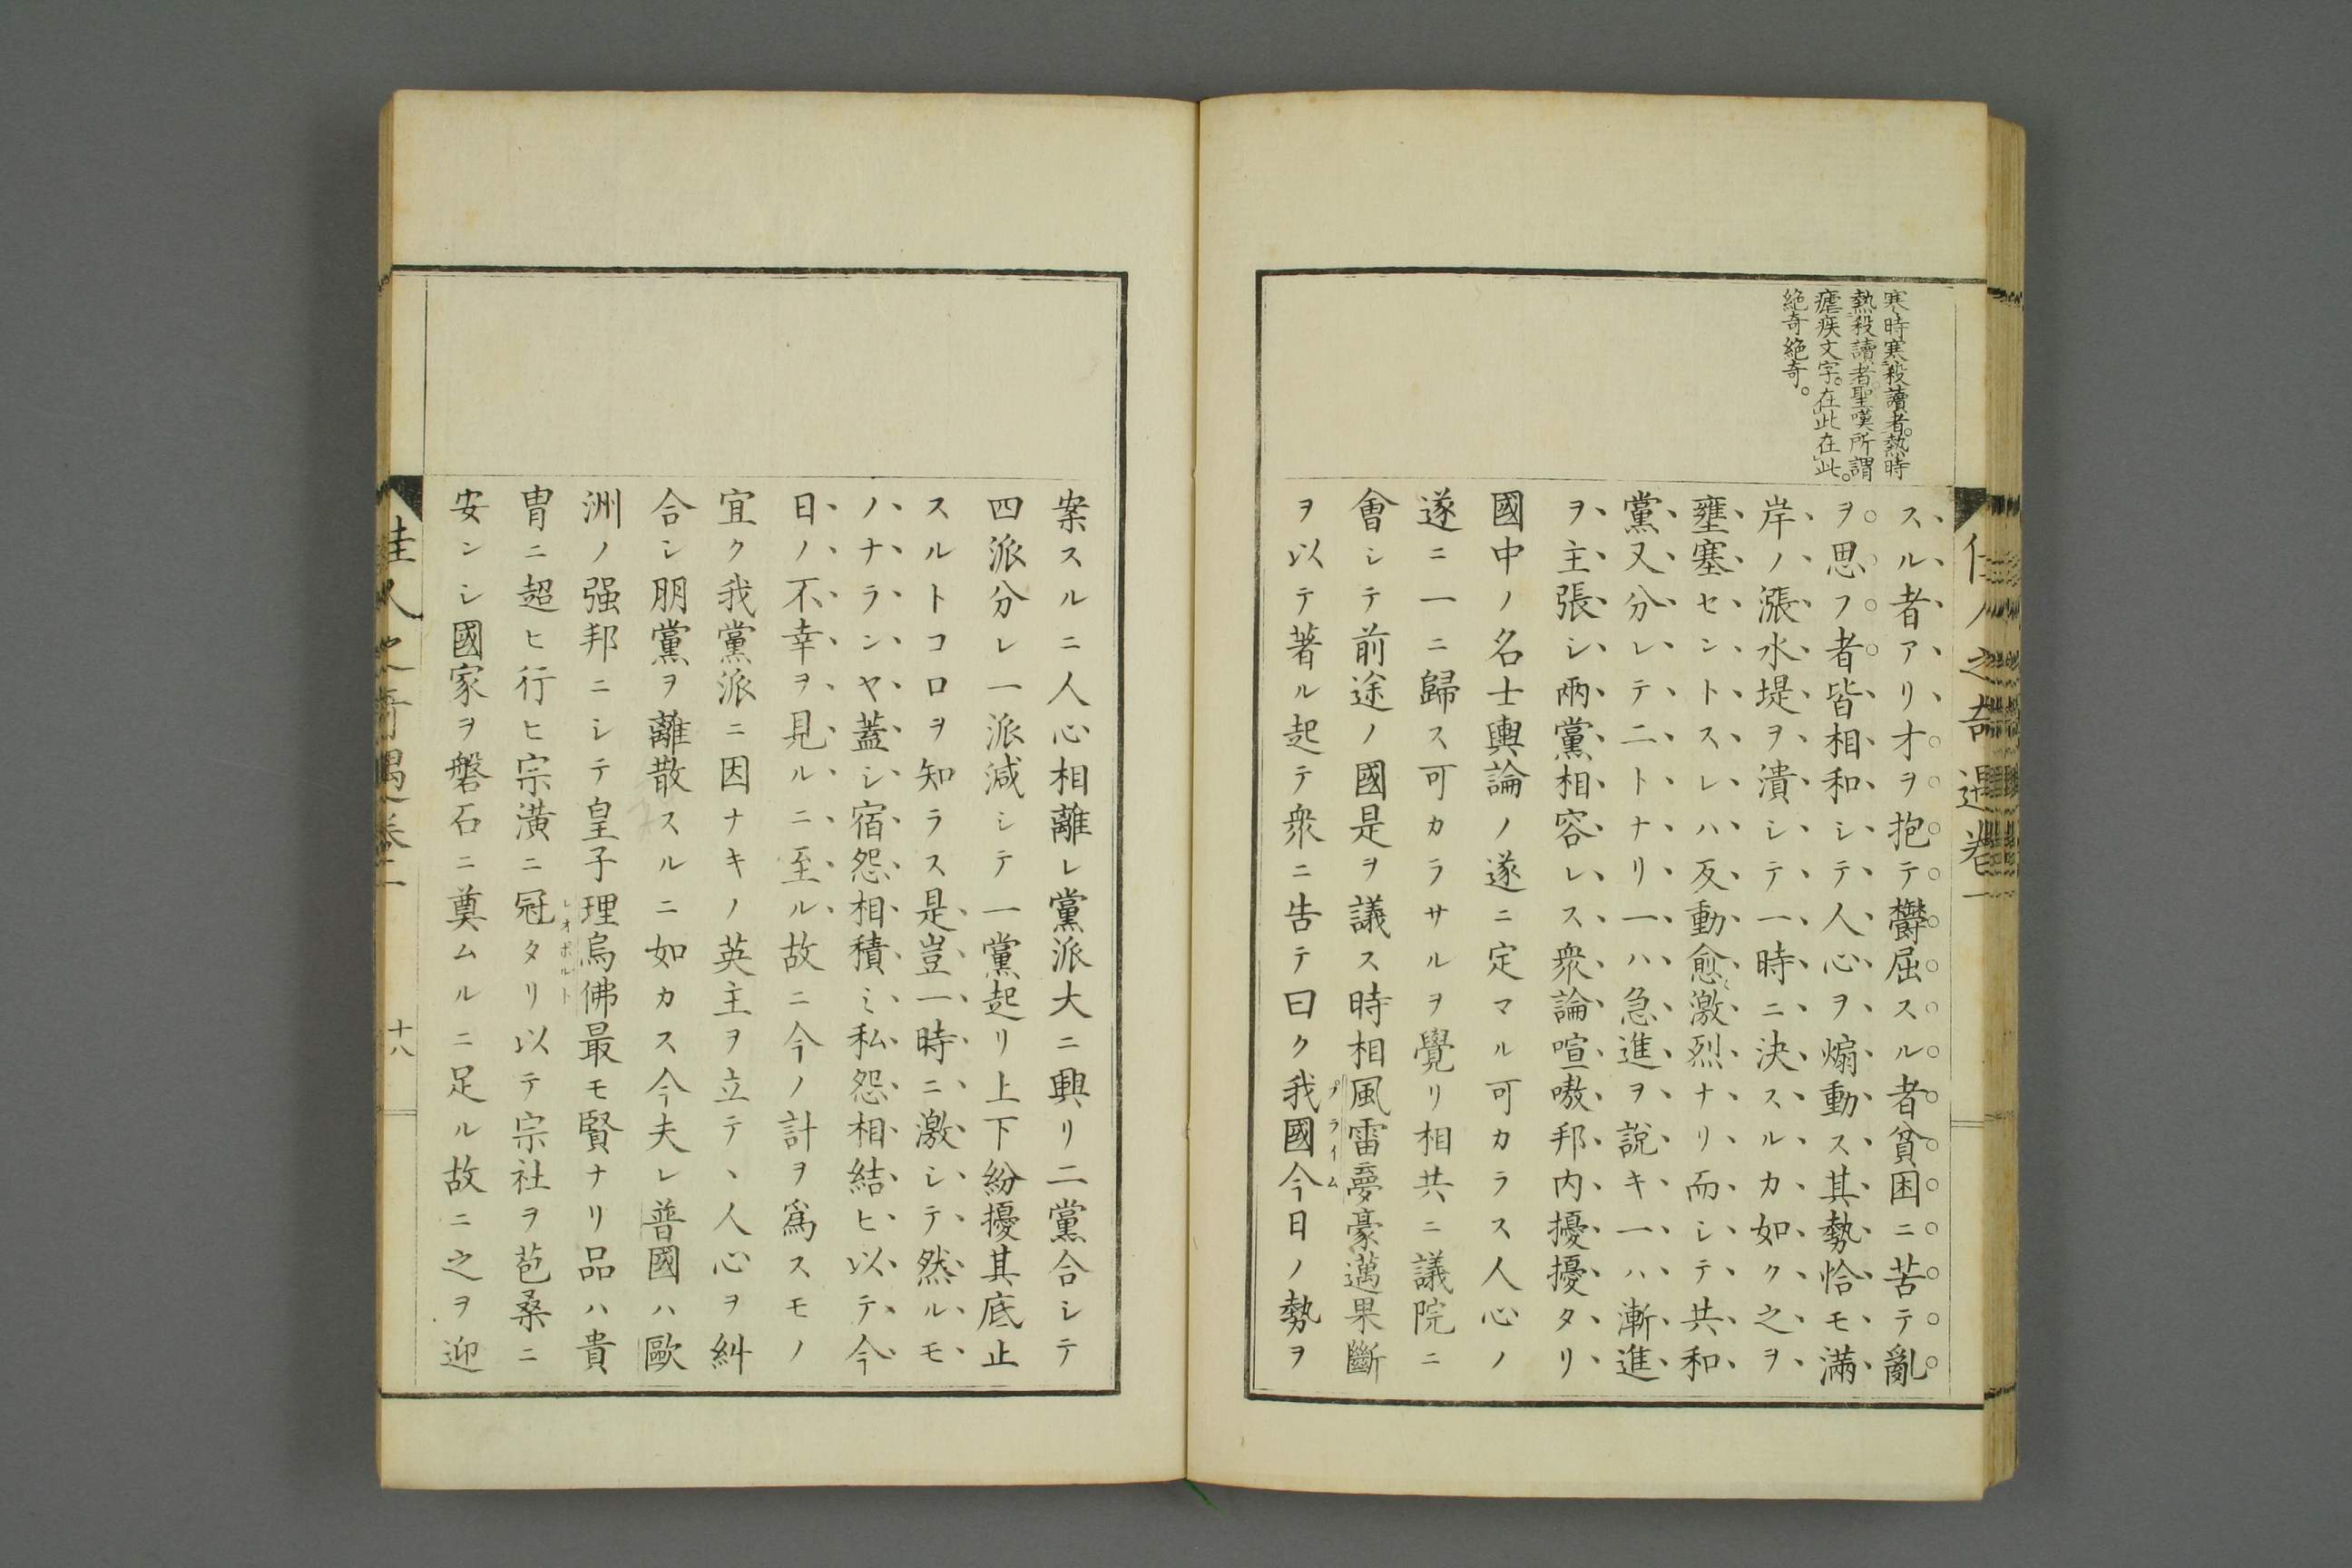 寒時寒殺讀者。熱時
熱殺讀者聖嘆所謂
瘧疾文字。在此在此。
絶奇絶奇。
スル者アリ才ヲ抱テ欝屈スル者貧困ニ苦テ亂
ヲ思フ者皆相和シテ人心ヲ煽動ス其勢恰モ滿
岸ノ漲水堤ヲ潰シテ一時ニ決スルカ如ク之ヲ
壅塞セントスレハ反動愈〻激烈ナリ而シテ共和
黨又分レテ二トナリ一ハ急進ヲ説キ一ハ漸進
ヲ主張シ兩黨相容レス衆論喧嗷邦内擾擾タリ
國中ノ名士輿論ノ遂ニ定マル可カラス人心ノ
遂ニ一ニ歸ス可カラサルヲ覺リ相共ニ議院ニ
會シテ前途ノ國是ヲ議ス時相風雷夢豪邁果斷
プライム
ヲ以テ著ル起テ衆ニ告テ曰ク我國今日ノ勢ヲ
案スルニ人心相離レ黨派大ニ興リ二黨合シテ
四派分レ一派減シテ一黨起リ上下紛擾其底止
スルトコロヲ知ラス是豈一時ニ激シテ然ルモ
ノナランヤ蓋シ宿怨相積ミ私怨相結ヒ以テ今
日ノ不幸ヲ見ルニ至ル故ニ今ノ計ヲ爲スモノ
宜ク我黨派ニ因ナキノ英主ヲ立テヽ人心ヲ糾
合シ朋黨ヲ離散スルニ如カス今夫レ普國ハ歐
洲ノ强邦ニシテ皇子理烏佛最モ賢ナリ品ハ貴
レオポルト
冑ニ超ヒ行ヒ宗潢ニ冠タリ以テ宗社ヲ苞桑ニ
安ンシ國家ヲ磐石ニ奠ムルニ足ル故ニ之ヲ迎
佳人之奇遇卷二
十八